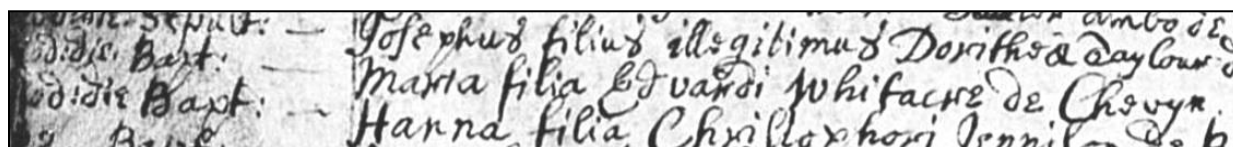 Sepult: ambo de
od: die Bapt: Josephus filius illegitimus Doritheæ Taylour
od: die Bapt: Maria filia Edvardi Whitacre de Chevyn.
Bapt: Hanna filia Christophori Jennison de